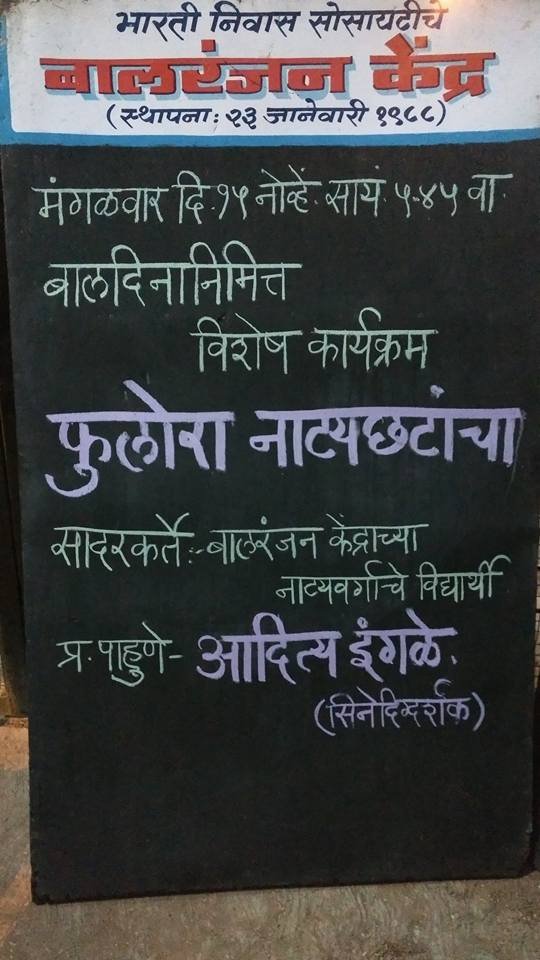 भारती निवास सोसायटीचे
बालरंजन केंद्र
(स्थापना: २३ जानेवारी १९८८)
मंगळवार दि.१५ नोव्हें. सायं ५.४५ वा.
बालदिनानिमित्त
विशेष कार्यक्रम
फुलोरा नाट्यछटांचा
सादरकर्ते:- बालरंजन केंद्राच्या
नाट्यवर्गाचे विद्यार्थी
प्र. पाहुणे- आदित्य इंगळे.
(सिनेदिग्दर्शक)